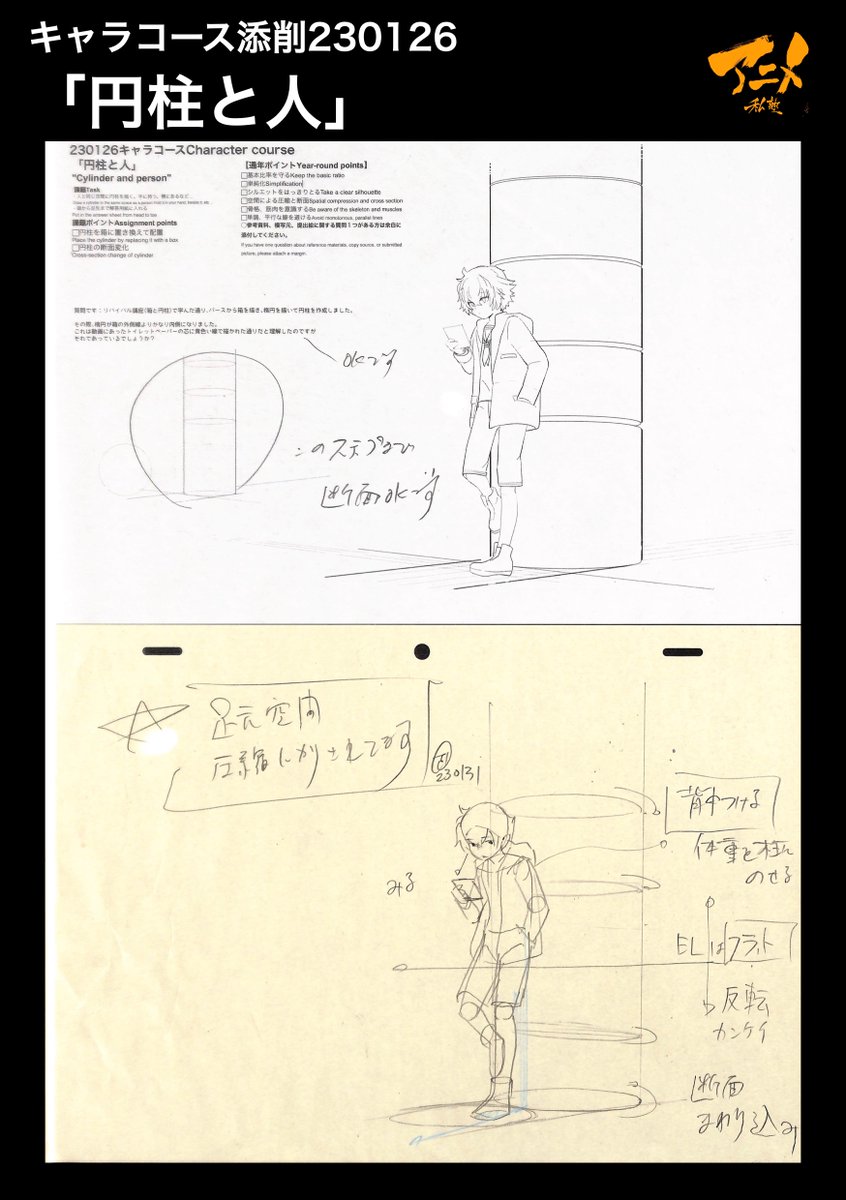 キャラコース添削230126
「円柱と人」
アニメ
私塾
230126キャラコースCharacter course
「円柱と人」
"Cylinder and person"
課題Task
Put in the answer sheet from head to toe
課題ポイントAssignment points
□円柱を箱に置き換えて配置
Place the cylinder by replacing it with a box
□円柱の断面変化
Cross-section change of cylinder
【通年ポイントYear-round points】
□基本比率を守るKeep the basic ratio
□単純化Simplification
□シルエットをはっきりとるTake a clear silhouette
□空間による圧縮と断面Spatial compression and cross section
□骨格、筋肉を意識するBe aware of the skeleton and muscles
□単調、平行な線を避けるAvoid monotonous, parallel lines
○参考資料、模写元、提出絵に関する質問１つがある方は余白に
添付してください。
If you have one question about reference materials, copy source, or submitted
picture, please attach a margin.
質問です：リバイバル講座（箱と円柱）で学んだ通り、パースから箱を描き、楕円を描いて円柱を作成しました。
その際、楕円が箱の外側線よりかなり内側になりました。
これは動画にあったトイレットペーパーの芯に黄色い線で描かれた通りだと理解したのですが
それであっているでしょうか？
OKです
このステップまで
断面OKです
足元空間
圧縮いかされてます
230131
背中つける
体重を柱に
のせる
みる
ELはフラット
反転
カンケイ
断面
まわり込み